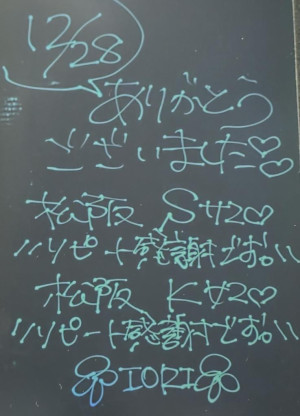 12/28
ありがとう
ございました♡♡
松阪 Sサン♡
リピート感謝です。
松阪 Kサン♡
リピート感謝です。
IORI